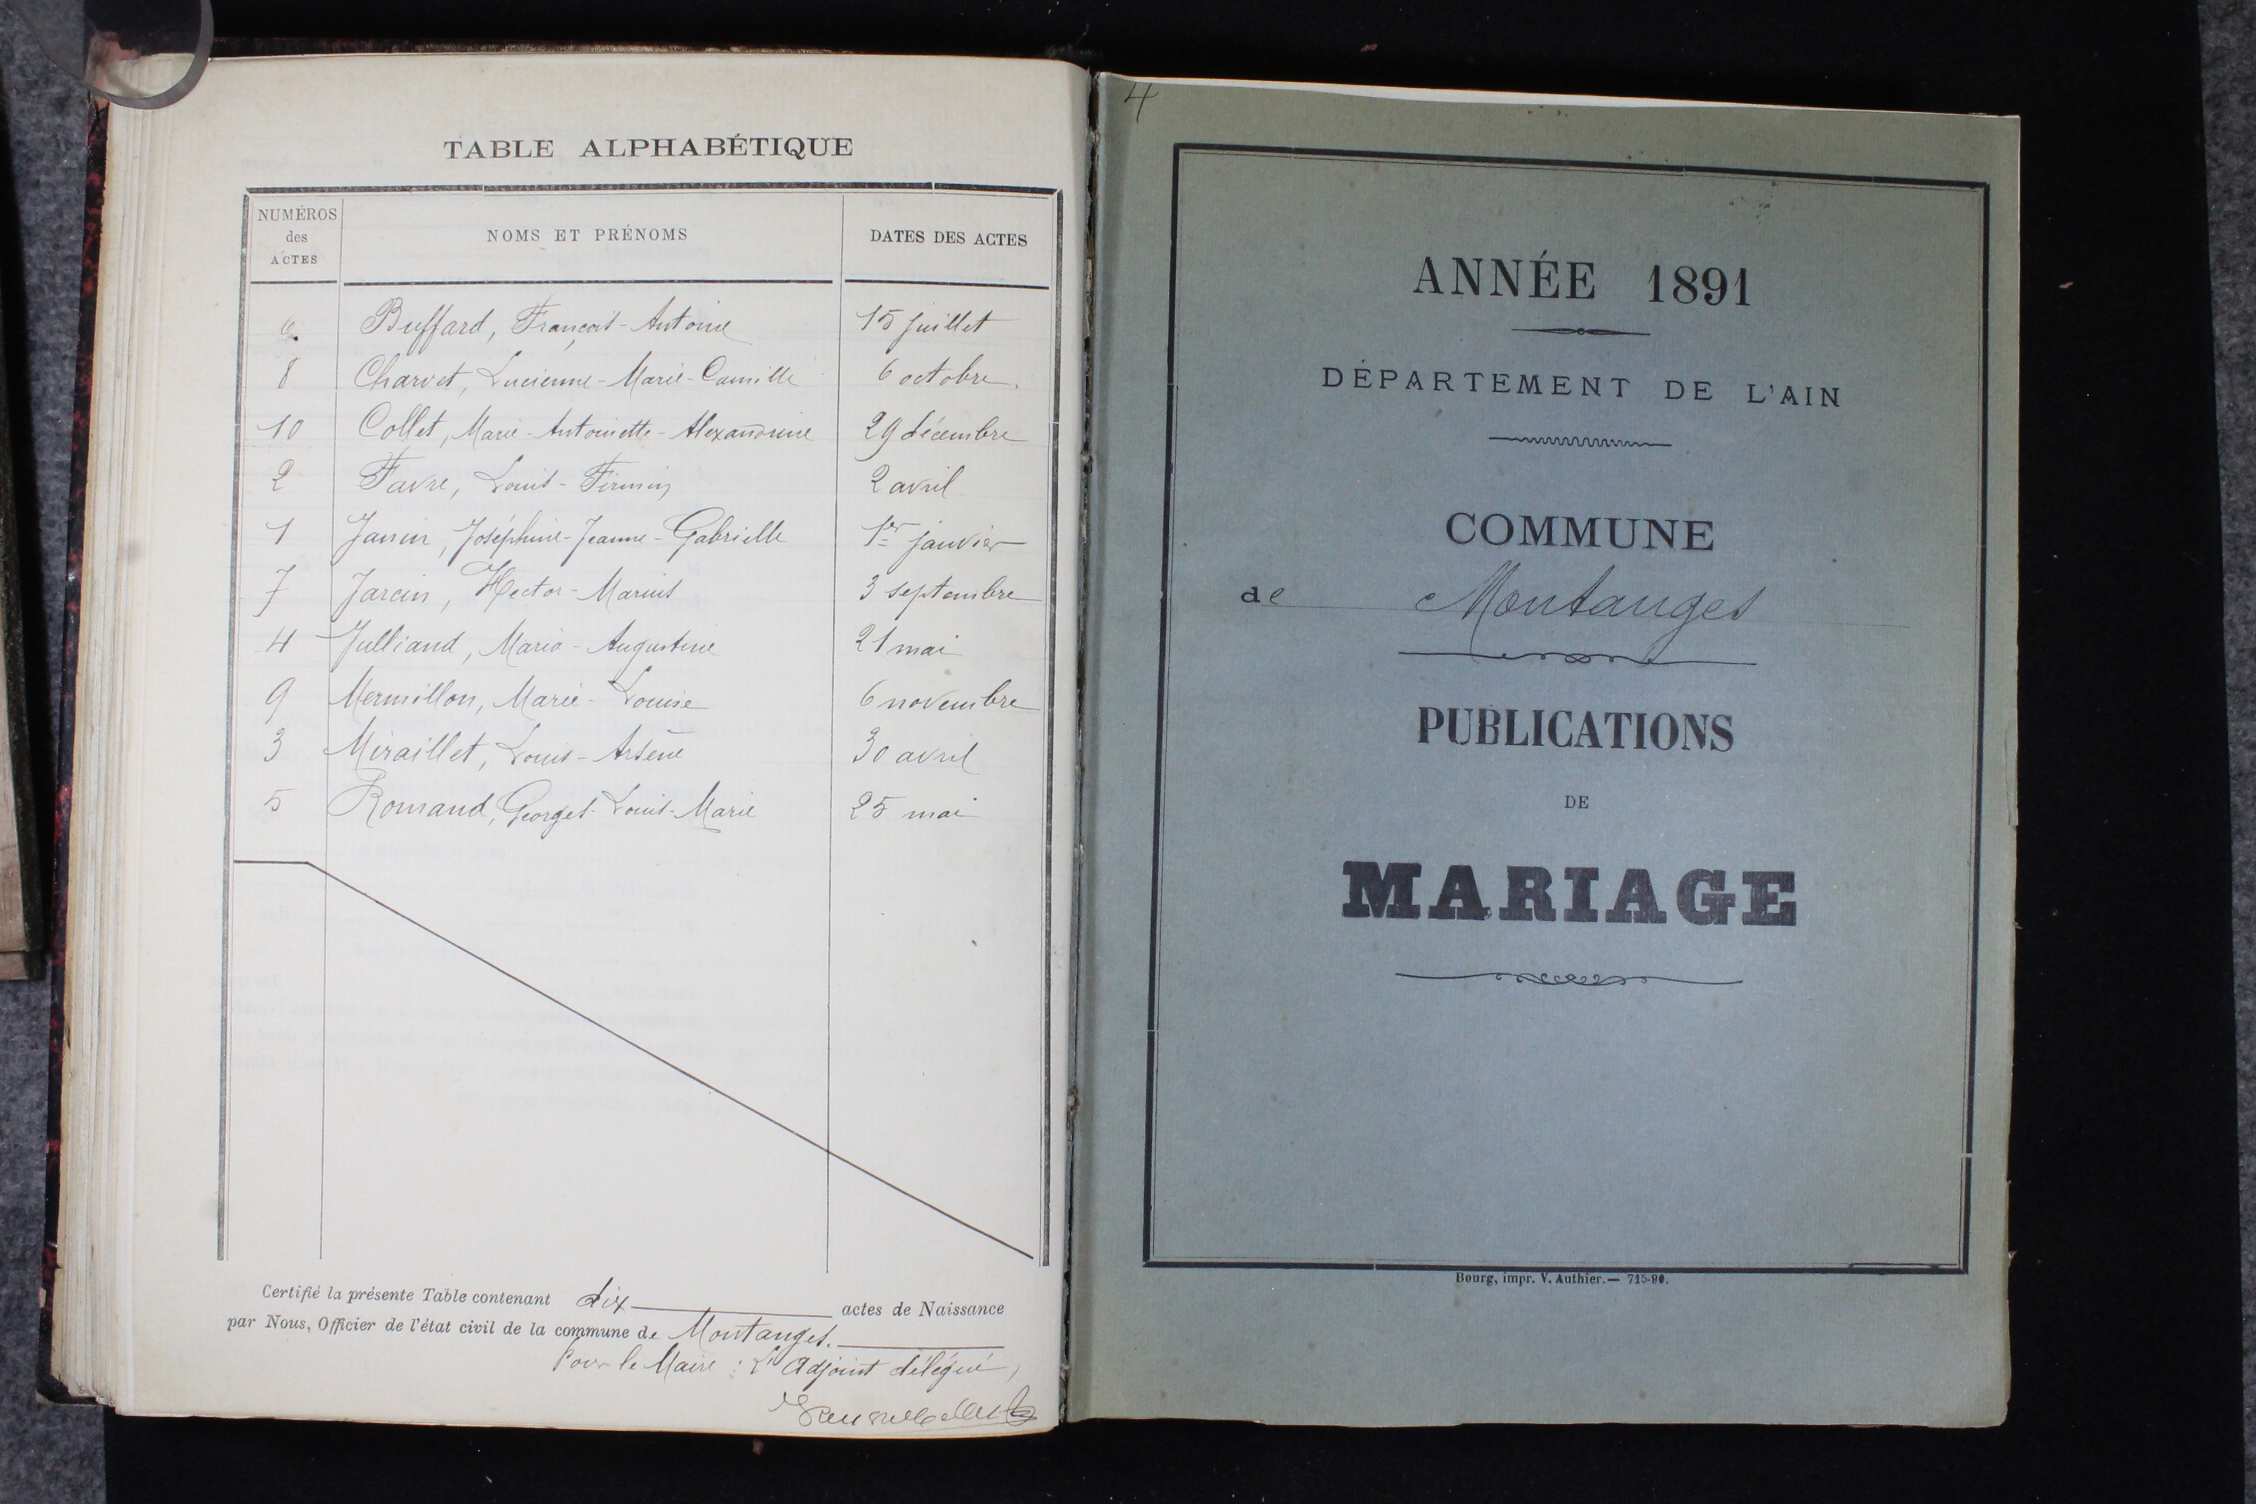 TABLE ALPHABÉTIQUE
NUMÉROS des ACTES NOMS ET PRÉNOMS DATES DES ACTES
6 Buffard, François-Antoine 15 juillet
8 Charvet, Lucienne-Marie-Camille 6 octobre
10 Collet, Marie-Antoinette-Alexandrine 29 décembre
2 Favre, Louis-Firmin 2 avril
1 Janin, Joséphine-Jeanne-Gabrielle 1er janvier
7 Jarcin, Hector-Marius 3 septembre
4 Julliand, Maria-Augustine 21 mai
9 Mermillon, Marie-Louise 6 novembre
3 Miraillet, Louis-Arsène 30 avril
5 Romand, Georges-Louis-Marie 25 mai
Certifié la présente Table contenant dix actes de Naissance
par Nous, Officier de l'état civil de la commune de Montanges.
Pour le Maire : L'Adjoint délégué,
4
ANNÉE 1891
DÉPARTEMENT DE L'AIN
COMMUNE
de Montanges
PUBLICATIONS
DE
MARIAGE
Bourg, impr. V. Authier.— 715-90.